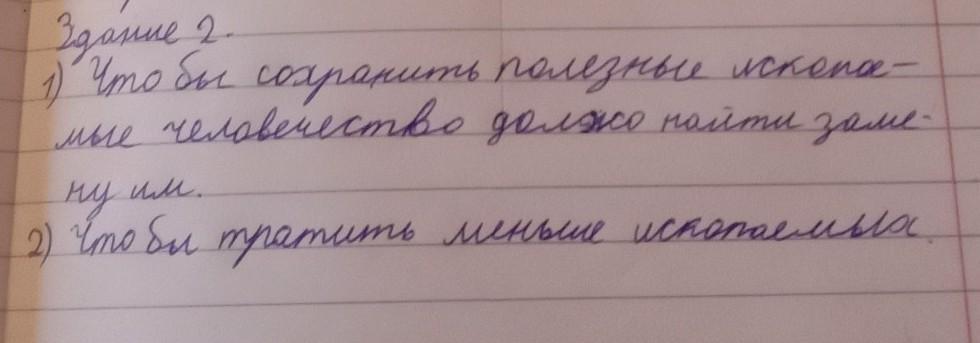 Здание 2.
1) Что бы сохранить полезные ископае-
мые человечество должо найти заме-
ну им.
2) Что бы тратить меньше ископаемых.